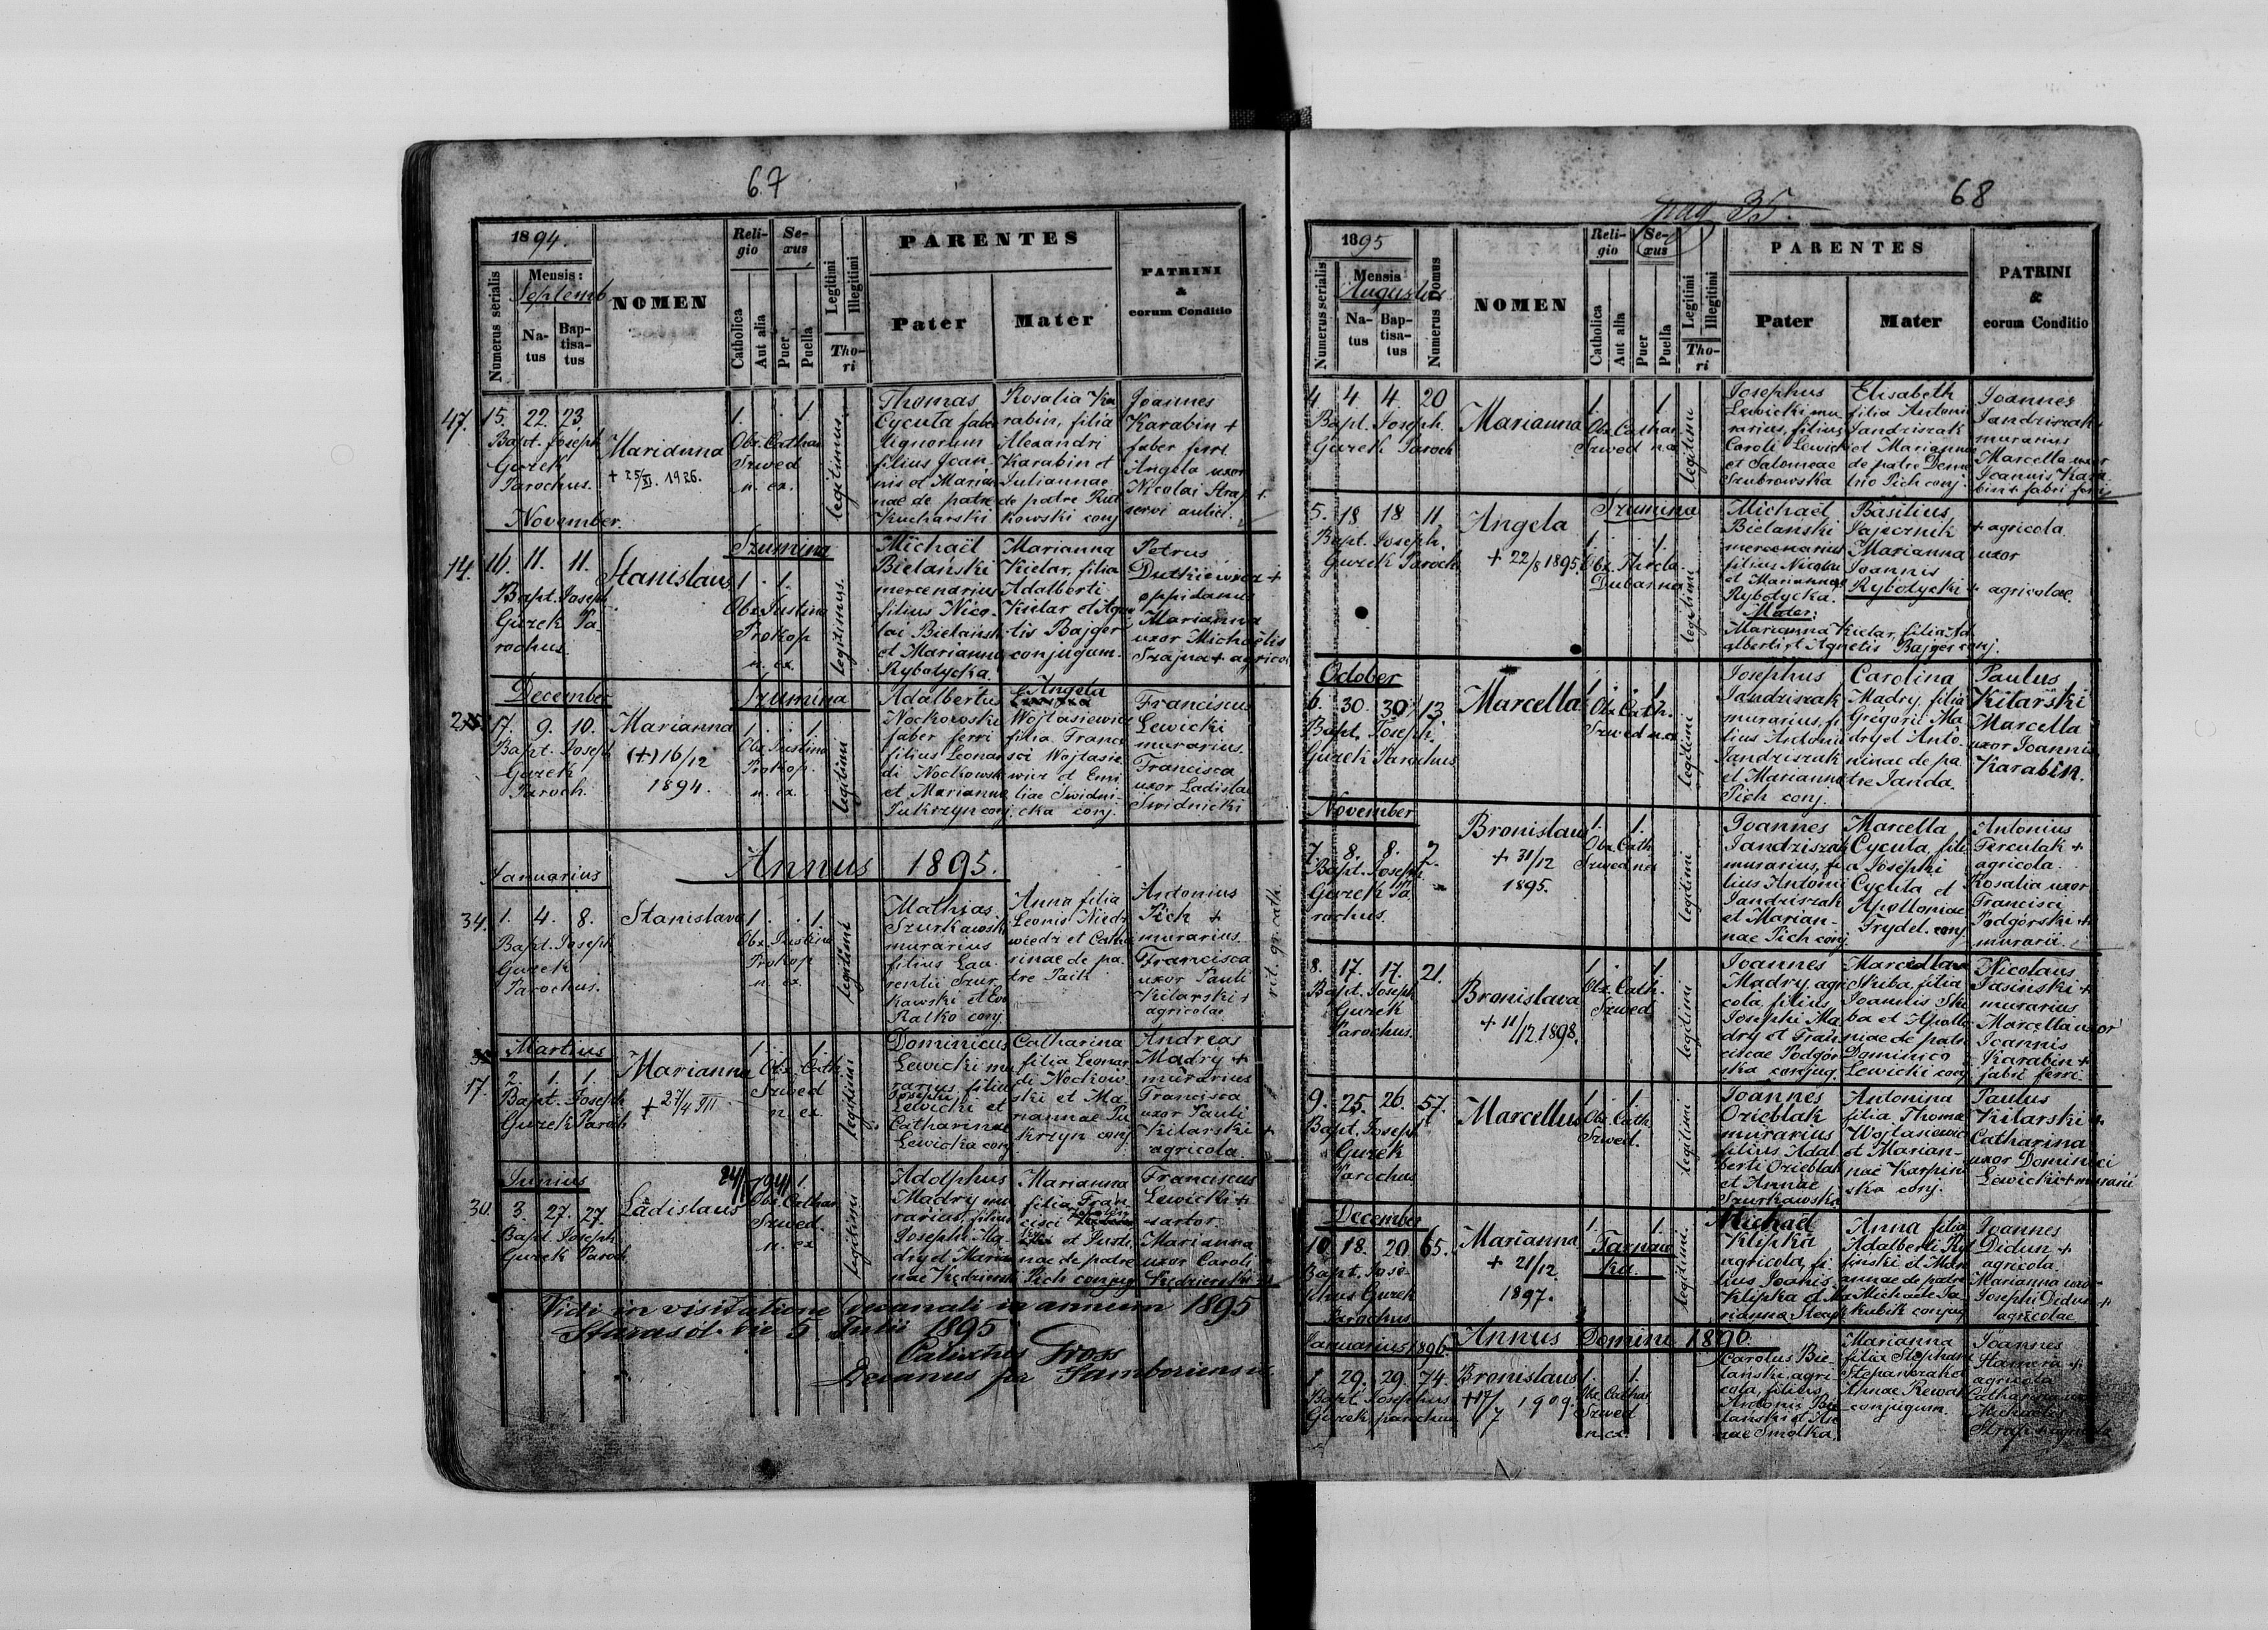 67
1894.
Numerus serialis
Mensis:
Septemb
Natus
Baptisatus
NOMEN
Religio
Catholica
Aut alia
Sexus
Puer
Puella
Legitimi
Illegitimi
Thori
PARENTES
Pater
Mater
PATRINI
&
eorum Conditio
47. 15. 22. 23.
Bapt. Joseph
Gurek
Parochus.
Marianna
+ 25/XI. 1926.
1. 1
Obs. Cathar
Szwed
n. ex.
legitimus.
Thomas
Cycuta faber
lignorum
filius Joan
nis et Marian
nae de patre
Kucharski
Rosalia Ka
rabin, filia
Alexandri
Karabin et
Juliannae
de patre Rut
kowski conj
Joannes
Karabin +
faber ferri
Angela uxor
Nicolai Strap +
servi aulici.
November
14. 16. 11. 11.
Bapt. Joseph
Gurek Pa-
rochus.
Stanislaus
Szumina
1. 1.
Obs. Justina
Prokop
n. ex.
legitimus.
Michaël
Bielanski
mercenarius
filius Nico-
lai Bielanski
et Marianna
Rybotycka.
Marianna
Kielar, filia
Adalberti
Kielar et Agne
tis Bajger
conjugum.
Petrus
Dutkiewicz +
oppidanus
Marianna
uxor Michaëlis
Szajna + agricol
December
17. 9. 10.
Bapt. Joseph
Gurek
Paroch.
Marianna
(+) 16/12
1894.
Szumina
1. 1
Obs. Justina
Prokop.
n. ex.
legitimi
Adalbertus
Nockowski
faber ferri
filius Leonar
di Nockowski
et Marianna
Pukrzyn conj.
Angela
Wojtasiewicz
filia Franci
sci Wojtasie
wicz et Emi
liae Swidni
cka conj.
Franciscus
Lewicki
murarius.
Francisca
uxor Ladislai
Swidnicki
Annus 1895.
Januarius
34. 1. 4. 8.
Bapt. Joseph
Gurek
Parochus.
Stanislava
1. 1.
Obs. Justina
Prokop
n. ex
legitimi
Mathias
Szurkawski
murarius
filius Lau-
rentii Szur
kawski et Eva
Ratko conj
Anna filia
Leonis Niedz
wiedz et Catha
rinae de pa-
tre Paik
Antonius
Pich +
murarius.
Francisca
uxor Pauli
Kilarski +
agricolae.
rit. gr. cath.
Martius
17. 2. 1. 1.
Bapt. Joseph
Gurek Paroh
Marianna
+ 27/4 III
1. 1.
Obs. Cath
Szwed
n. ex
legitimi
Dominicus
Lewicki mu
rarius filius
Josephi
Lewicki et
Catharinae
Lewicka conj
Catharina
filia Leonar
di Nockow-
ski et Ma-
riannae Pu
krzyn conj
Andreas
Madry +
murarius
Francisca
uxor Pauli
Kilarski +
agricola.
Junius
30. 3. 27. 27.
Bapt. Joseph.
Gurek Paroch.
Ladislaus
1.
Obs. Cathar
Szwed.
n. ex
legitimi
Adolphus
Madry mu
rarius, filius
Josephi Ma
dry et Maria
nae Kedzierski
Marianna
filia Fran
cisci
et Justi
nae de patre
Pich conjug
Franciscus
Lewicki +
sartor.
Marianna
uxor Caroli
Kedzierski
Vidi in visitatione decanali in annum 1895
Starasól die 5 Julii 1895
Calixtus Fross
Decanus for Samboriensis.
pag 35.
68
1895
Numerus serialis
Mensis
Augustus
Natus
Baptisatus
Numerus Domus
NOMEN
Religio
Catholica
Aut alia
Sexus
Puer
Puella
Legitimi
Illegitimi
Thori
PARENTES
Pater
Mater
PATRINI
&
eorum Conditio
4 4 4 20
Bapt. Joseph.
Gurek Paroch
Marianna
1. 1
Obs. Cathar
Szwed n.a
legitimi
Josephus
Lewicki mu
rarius, filius
Caroli Lewicki
et Salomeae
Szubrowska
Elisabeth
filia Antonii
Jandziszak
et Marianna
de patre Deme
trio Pich conj.
Joannes
Jandziszak +
murarius
Marcella uxor
Joannis Kara
bin + fabri ferri
5. 18 18 11
Bapt. Joseph.
Gurek Paroch
Angela
+ 22/8 1895.
Szumina
1. 1.
Obs. Thecla
Dubasna
legitimi
Michaël
Bielanski
mercenarius
filius Nicolai
et Mariannae
Rybotycka.
Mater:
Marianna Kielar, filia Ad
alberti et Agnetis Bajger conj.
Basilius
Pajecznik
Marianna
Joannis
Rybotycki
+ agricola
uxor
+ agricolae.
October
6. 30. 30. 13.
Bapt. Joseph.
Gurek Parochus
Marcella
1. 1.
Obs. Cath.
Szwed n.ex
legitimi
Josephus
Jandziszak
murarius, fi
lius Antonii
Jandziszak
et Marianna
Pich conj.
Carolina
Madry, filia
Gregorii Ma
dry et Anto-
ninae de pa
tre Janda.
Paulus
Kilarski
Marcella
uxor Joannis
Karabin.
November
7. 8. 8. 2.
Bapt. Joseph.
Gurek Pa
rochus.
Bronislaus
+ 31/12
1895.
1. 1.
Obs. Cath.
Szwed nex
legitimi
Joannes
Jandziszak
murarius, fi
lius Antonii
Jandziszak
et Marian-
nae Pich conj
Marcella
Cycuta, fili
a Josephi
Cycuta et
Apolloniae
Frydel. conj
Antonius
Ferculak +
agricola.
Rosalia uxor
Francisci
Podgórski +
murarii.
8. 17. 17. 21.
Bapt. Joseph
Gurek
Parochus.
Bronislava
+ 11/12 1898.
1. 1
Obs. Cath.
Szwed
legitimi
Joannes
Madry, agri
cola, filius
Josephi Ma
dry et Fran
ciscae Podgór
ska conjug.
Marcella
Skiba, filia
Joannis Ski
ba et Apollo
niae de patre
Dominico
Lewicki conj
Nicolaus
Jasinski +
murarius
Marcella uxor
Joannis
Karabin +
fabri ferri.
9. 25. 26. 57.
Bapt. Joseph
Gurek
Parochus
Marcellus
1. 1.
Obs. Cath
Szwed.
legitimi
Joannes
Ozieblak
murarius
filius Adal
berti Ozieblak
et Annae
Szurkawska
Antonina
filia Thomae
Wojtasiewicz
et Marian-
nae Karpin
ska conj.
Paulus
Kilarski +
Catharina
uxor Dominici
Lewicki + murarii
December
10. 18. 20. 65.
Bapt. Jose-
phus Gurek
Parochus
Marianna
+ 21/12
1897.
1. 1.
Tarnaw
ka.
legitimi.
Michaël
Klipka
agricola, fi
lius Joanis
Klipka et Ma
rianna
Anna filia
Adalberti
et Mari
annae de patre
Michaele
Kubik conjug
Joannes
Didun +
agricola.
Marianna uxor
Josephi Didun +
agricolae
Januarius 1896 Annus Domini 1896.
1. 29. 29. 74.
Bapt. Josephus
Gurek parochus
Bronislaus
+ 17/7 1909.
1. 1.
Obs. Cathar
Szwed
n. ex.
Carolus Bie-
lański, agri
cola, filius
Antonii Bie
lański et An
nae Smolka.
Marianna
filia Stephani
Stepaniak et
Annae
conjugum.
Joannes
Stamera +
agricola
Catharina uxor
Michaelis
Strap + agricola